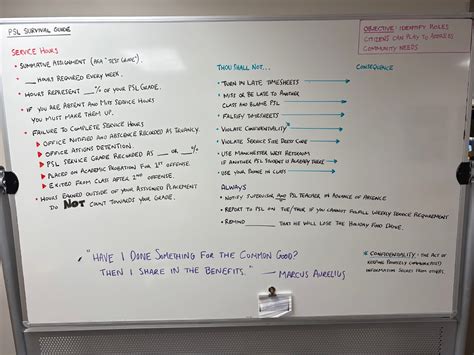 PSL SURVIVAL GUIDE
OBJECTIVE: IDENTIFY ROLES
CITIZENS CAN PLAY TO ADDRESS
COMMUNITY NEEDS
SERVICE HOURS
• SUMMATIVE ASSIGNMENT (AKA "TEST GRADE").
• __ HOURS REQUIRED EVERY WEEK.
• HOURS REPRESENT __% OF YOUR PSL GRADE.
• IF YOU ARE ABSENT AND MISS SERVICE HOURS
YOU MUST MAKE THEM UP.
• FAILURE TO COMPLETE SERVICE HOURS
OFFICE NOTIFIED AND ABSENCE RECORDED AS TRUANCY.
OFFICE ASSIGNS DETENTION.
PSL SERVICE GRADE RECORDED AS __ OR __%
PLACED ON ACADEMIC PROBATION FOR 1ST OFFENSE.
EXITED FROM CLASS AFTER 2ND OFFENSE.
• HOURS EARNED OUTSIDE OF YOUR ASSIGNED PLACEMENT
DO NOT COUNT TOWARDS YOUR GRADE.
THOU SHALL NOT...
CONSEQUENCE
• TURN IN LATE TIMESHEETS
• MISS OR BE LATE TO ANOTHER
CLASS AND BLAME PSL
• FALSIFY TIMESHEETS
• VIOLATE CONFIDENTIALITY
• VIOLATE SERVICE SITE DRESS CODE
• USE MANCHESTER WEST RESTROOM
IF ANOTHER PSL STUDENT IS ALREADY THERE
• USE YOUR PHONE IN CLASS
ALWAYS
• NOTIFY SUPERVISOR AND PSL TEACHER IN ADVANCE OF ABSENCE
• REPORT TO PSL ON TUE/THUR IF YOU CANNOT FULFILL WEEKLY SERVICE REQUIREMENT
• REMIND ____ THAT HE WILL LOSE THE HOLIDAY FOOD DRIVE.
"HAVE I DONE SOMETHING FOR THE COMMON GOOD?
THEN I SHARE IN THE BENEFITS." — MARCUS AURELIUS
* CONFIDENTIALITY: THE ACT OF
KEEPING INFORMATION SECRET FROM OTHERS.